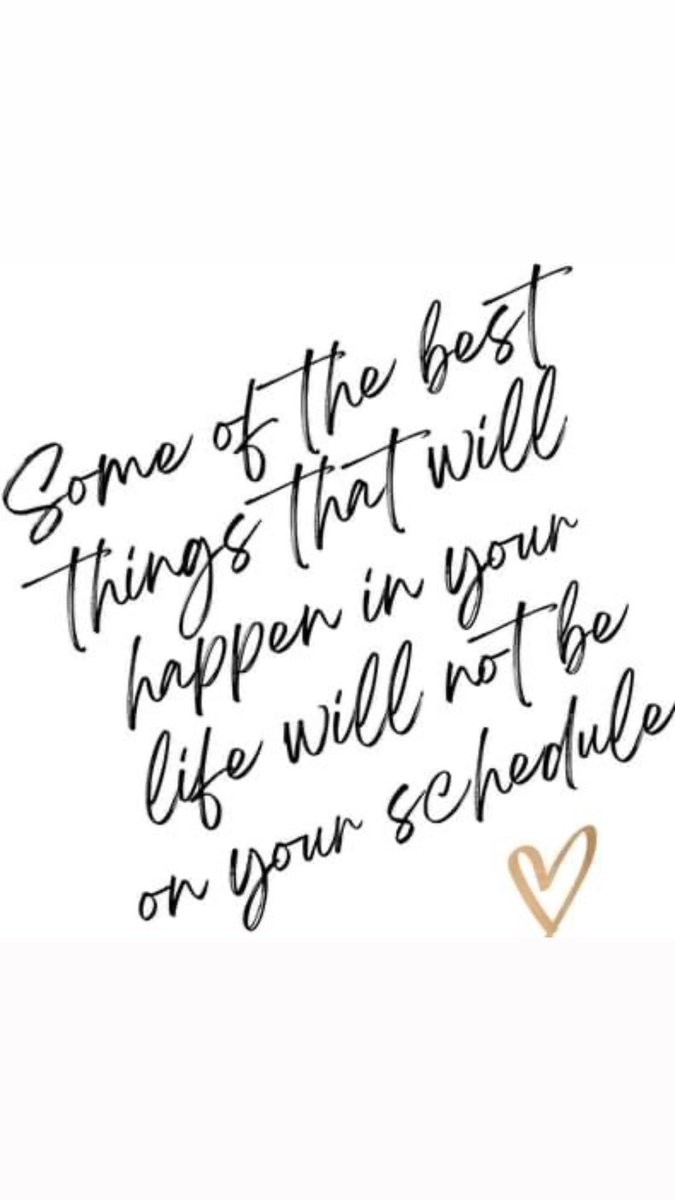 Some of the best
things that will
happen in your
life will not be
on your schedule